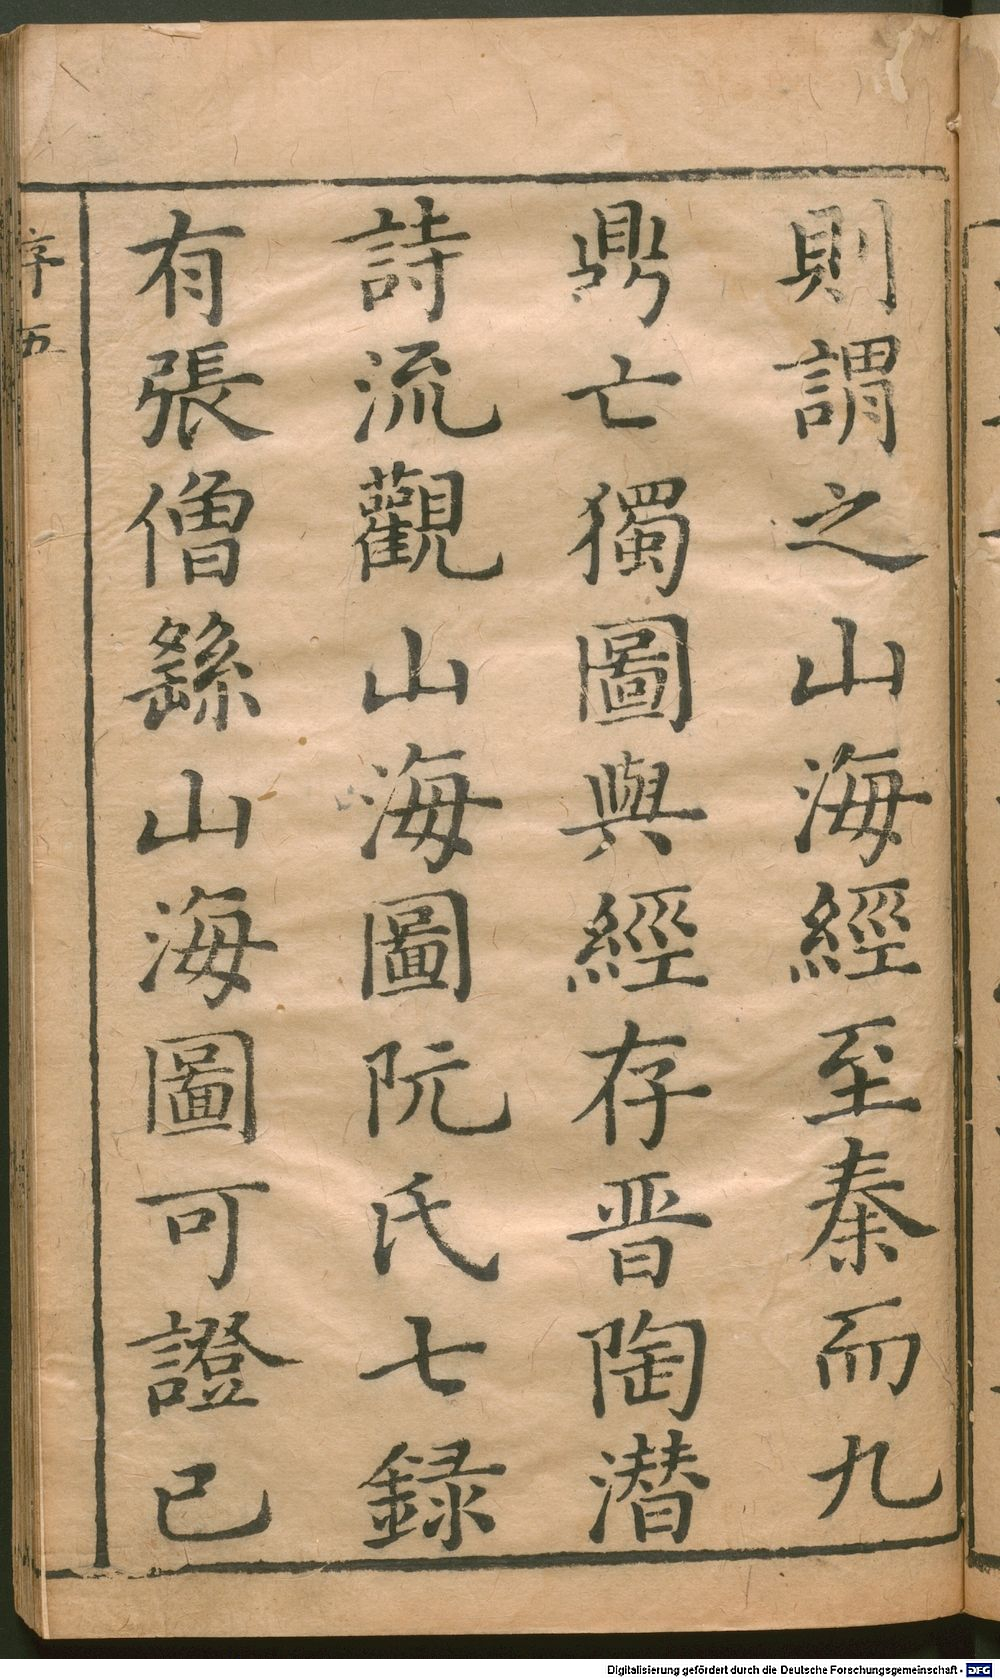 則謂之山海經至秦而九
鼎亡獨圖與經存晋陶潛
詩流觀山海圖阮氏七録
有張僧繇山海圖可證已
序 五
Digitalisierung gefördert durch die Deutsche Forschungsgemeinschaft - DFG